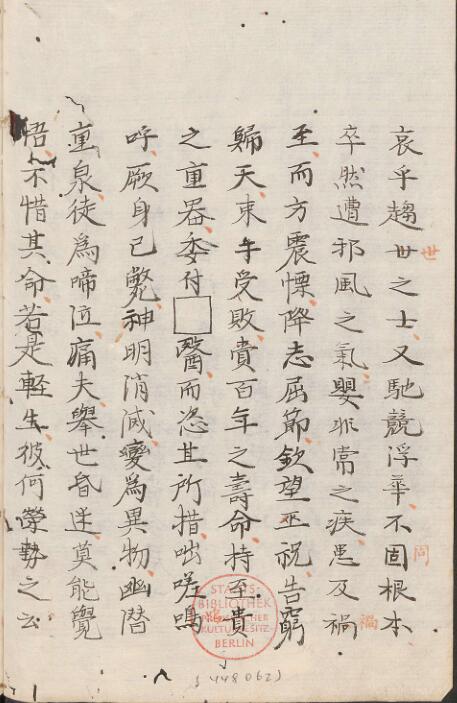 哀乎趨世之士又馳競浮華不固根本
世
固
卒然遭邪風之氣嬰非常之疾患及禍
禍
至而方震慄降志屈節欽望巫祝告窮
歸天束手受敗賫百年之壽命持至貴
之重器委付醫而恣其所措咄嗟嗚
呼厥身已斃神明消滅變為異物幽潛
重泉徒為啼泣痛夫舉世昏迷莫能覺
悟不惜其命若是輕生彼何榮勢之云
STAATS-
BIBLIOTHEK
KULTURBESITZ
BERLIN
448062